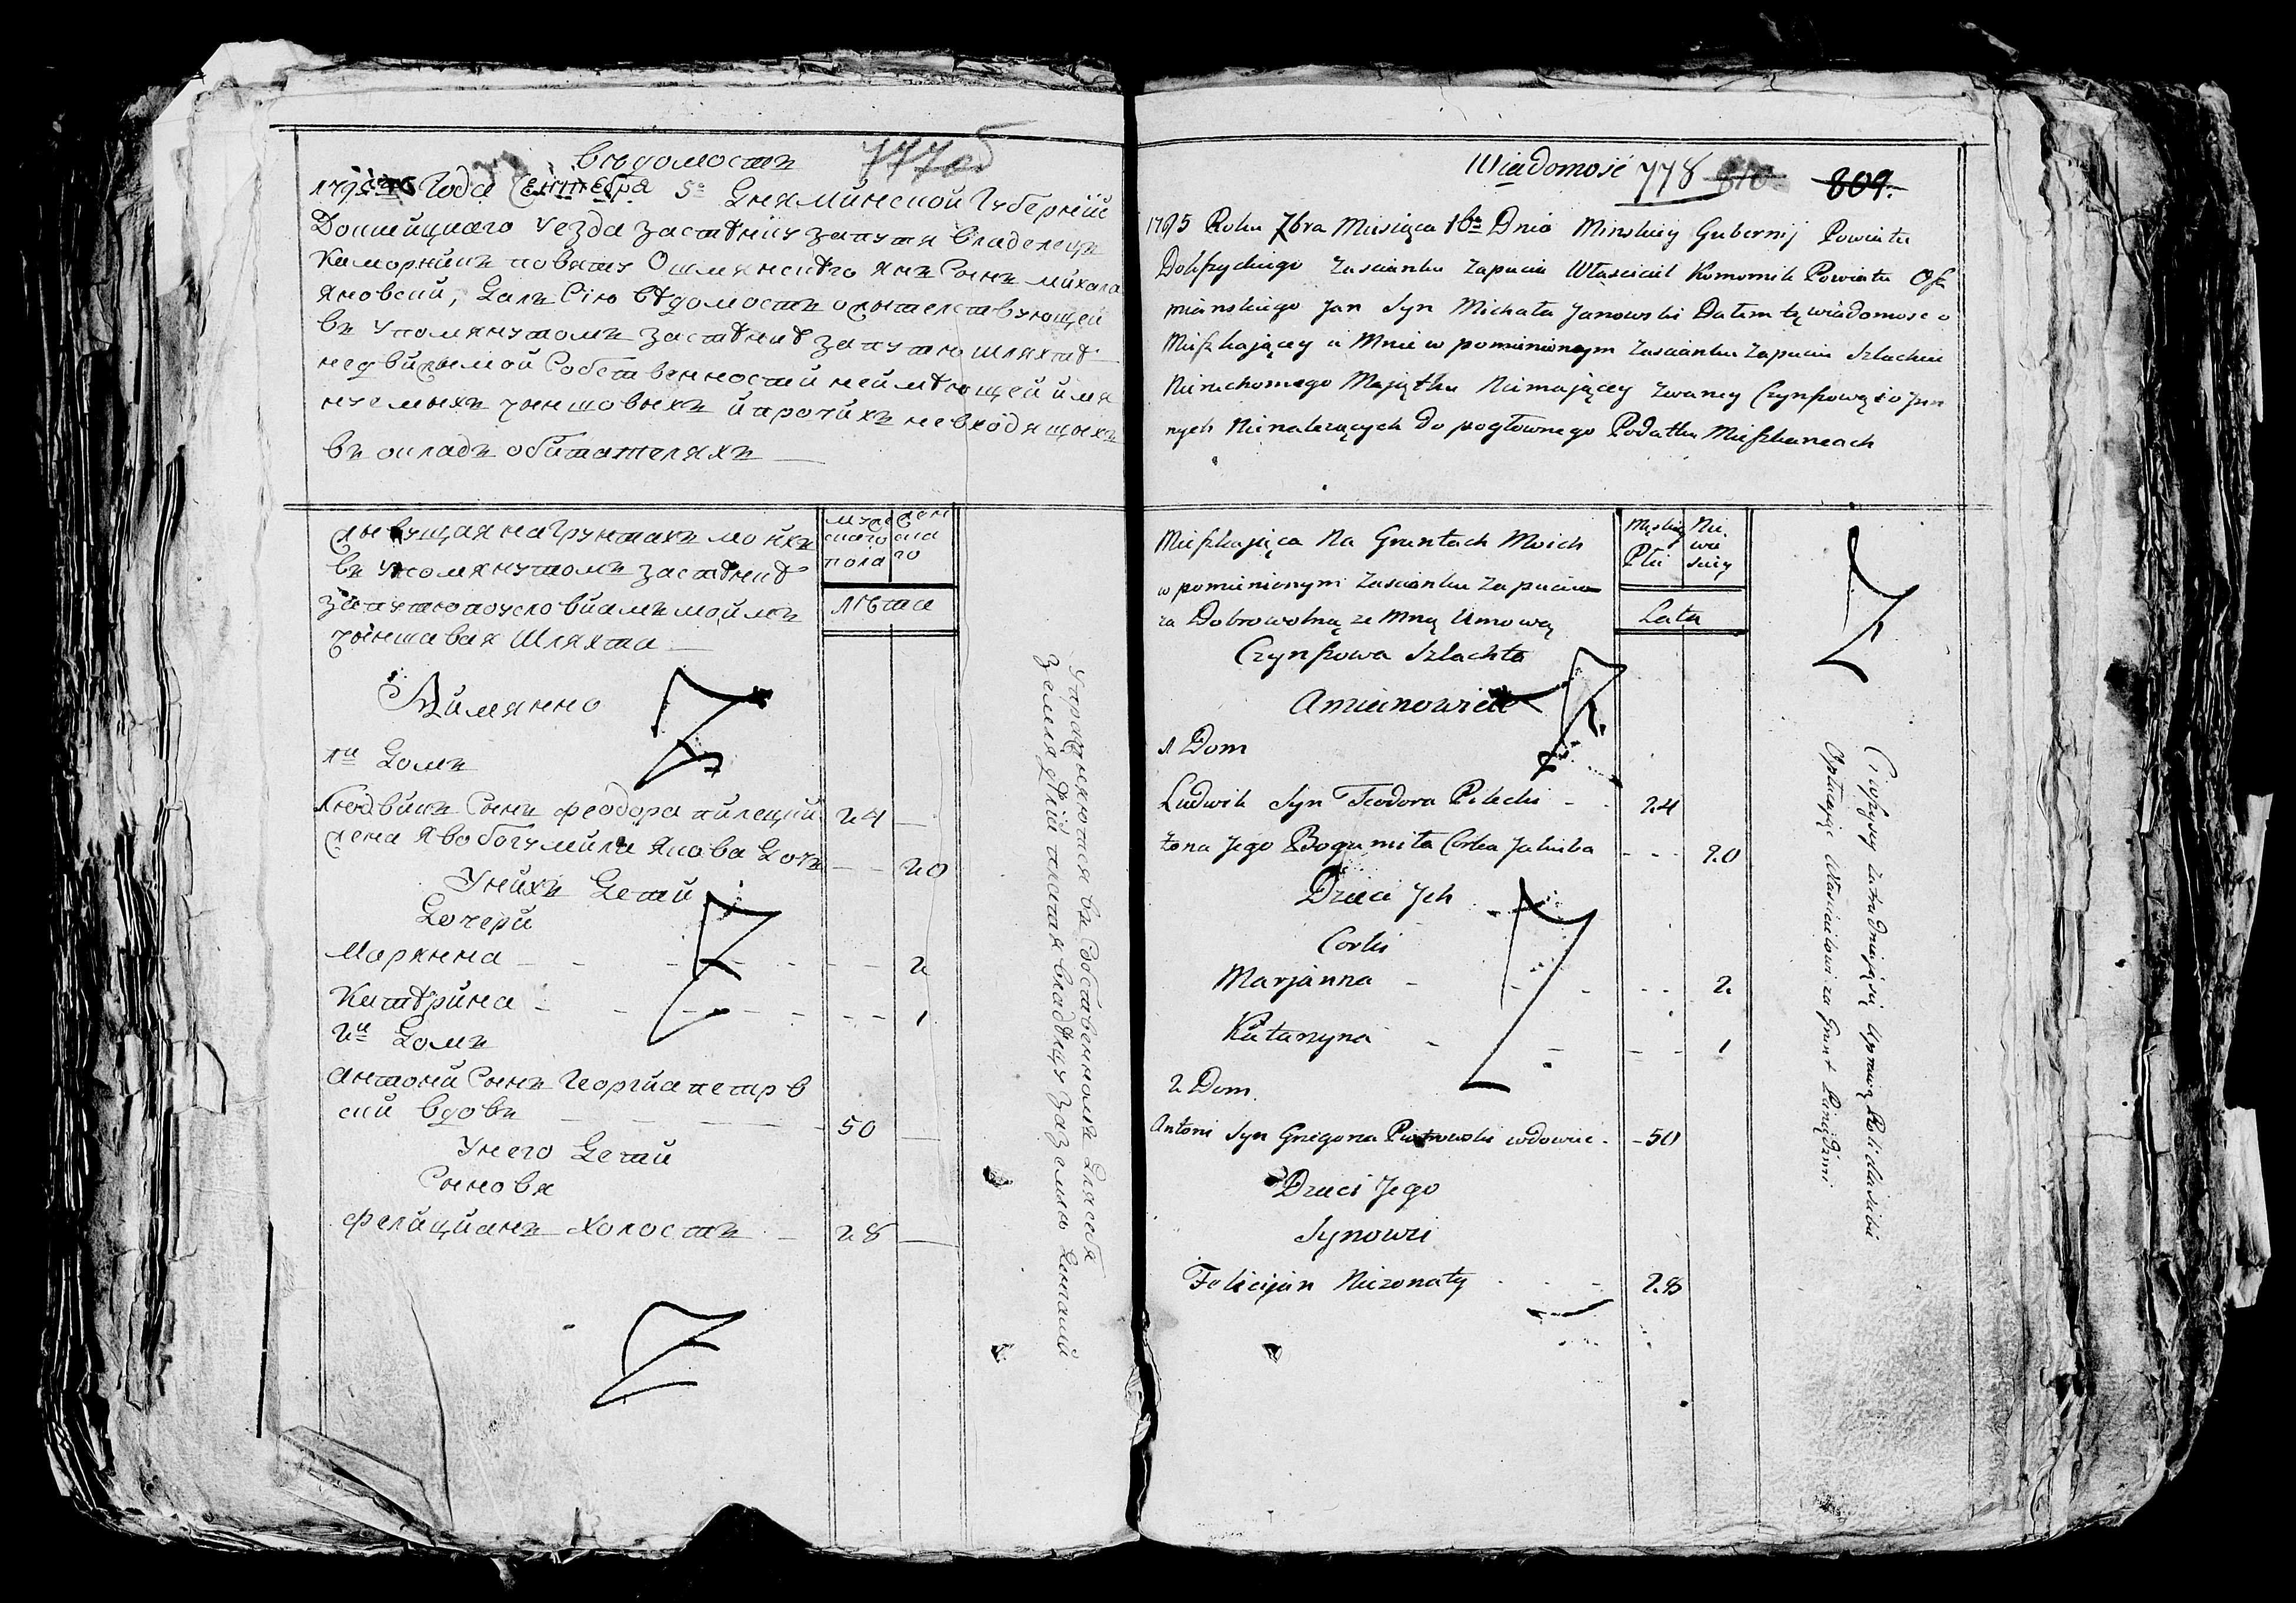 Вѣдомость 777об
1795 года Сентебра 5º Дня Минской Губернiи
Докшицкаго уезда застѣнку запутя владелецъ
Каморникъ повяту Ошмянскѣго Янъ Сынъ михала
Яновский, Далъ Сiю вѣдомость ожытелствующей
въ упомянутомъ застѣнкѣ запутю шляхтѣ
недвижымой Собственностий неймѣющей имя
нуемыхъ чыншовыхъ й прочйхъ невходящыхъ
въ окладъ обитателяхъ
Жывущая на грунтахъ мойхъ
въ упомянутомъ застѣнкѣ
запутю поусловиамъ моймъ
чыншавая шляхта
мужескаго пола
женскаго
лѣта
А ймянно
1й Домъ
Людвикъ Сынъ Феодора пилецкий 24
Жена Яво богумила Якова Дочъ 20
Унйхъ Детй
Дочери
Марянна 2
Катѣрина 1
2й Домъ
Антоний Сынъ Георгиа петров
ский вдовъ 50
Унего Детй
Сыновя
Фелициянъ холостъ 28
Упражняются въ Собственномъ Для себя
земля дѣлiй платя владѣлцу за землю Денгами
Wiadomość 778 810 809.
1795 Roku 7bra Miesiąca 16º Dnia Minskiey Gubernij Powiatu
Dokszyckiego Zascianku Zapucia Właściciel Komornik Powiatu Osz
mianskiego Jan Syn Michała Janowski Dałem tę wiadomosc o
Mieszkaiącey u Mnie w pomienionym Zascianku Zapuciu Szlachcie
Nieruchomego Maiątku Niemaiącey Zwaney Czynszową i o Jnn
nych Nienależących Do pogłownego Podatku Mieszkancach
Mieszkaiąca Na Gruntach Moich
w pomienionym Zascianku Zapuciu
za Dobrowolną ze Mną Umową
Czynszowa Szlachta
Męskiey Płci
Niewieskiey
Lata
A mienowicie
1 Dom
Ludwik Syn Teodora Pilecki 24
Żona Jego Bogumiła Corka Jakuba 20
Dzieci Jch
Corki
Marjanna 2
Katarzyna 1
2 Dom
Antoni Syn Grzegorza Piotrowski wdowiec 50
Dzieci Jego
Synowie
Felicijan Nieżonaty 28
Ci wszyscy zatrudniaią się Uprawą Roli dla siebie
Opłacaiąc Właścicielowi za Grunt Pieniędzmi